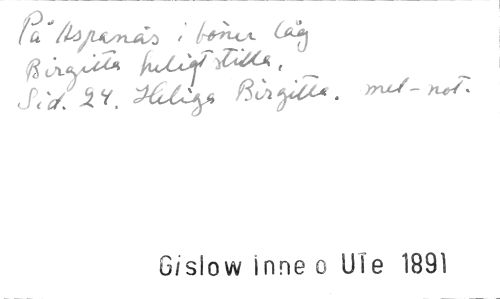 På Aspanäs i böner låg
Birgitta heligt stilla.
Sid. 24. Heliga Birgitta. mel-not.
Gislow inne o Ute 1891